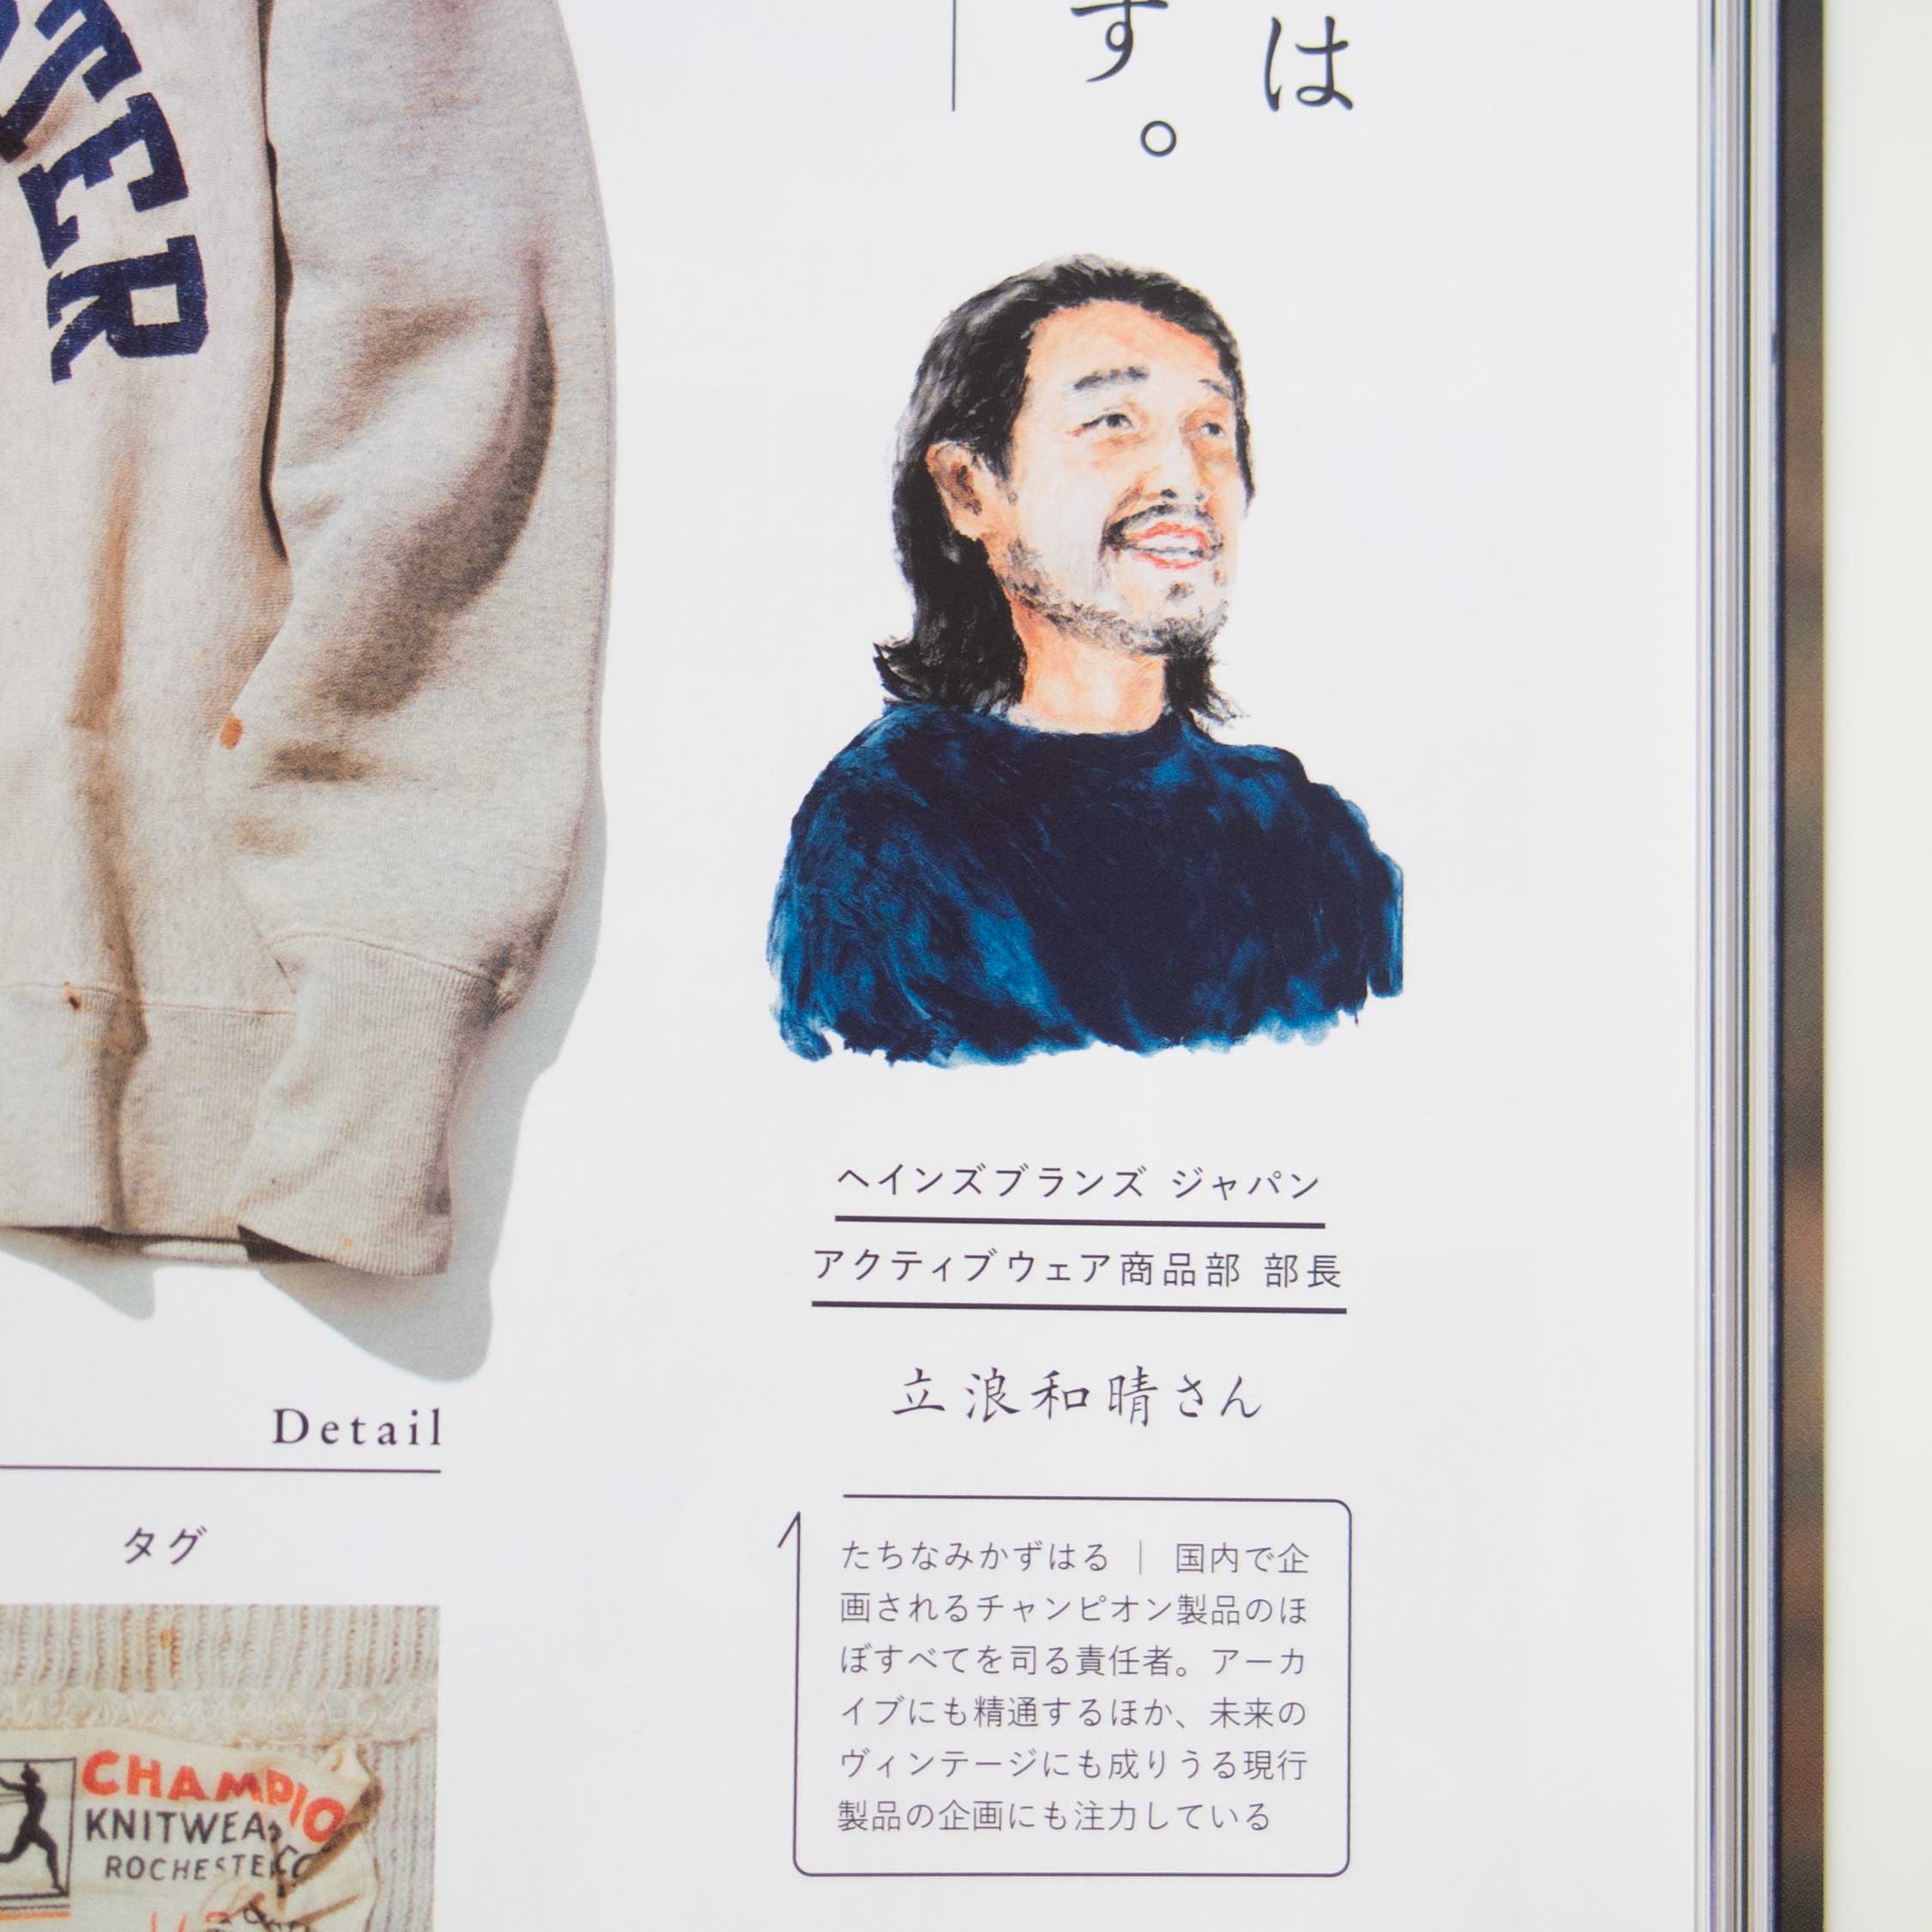 は
す。
TER
ヘインズブランズ ジャパン
アクティブウェア商品部 部長
立浪和晴さん
たちなみかずはる｜ 国内で企
画されるチャンピオン製品のほ
ぼすべてを司る責任者。アーカ
イブにも精通するほか、未来の
ヴィンテージにも成りうる現行
製品の企画にも注力している
Detail
タグ
CHAMPIO
KNITWEAR CO
ROCHESTE